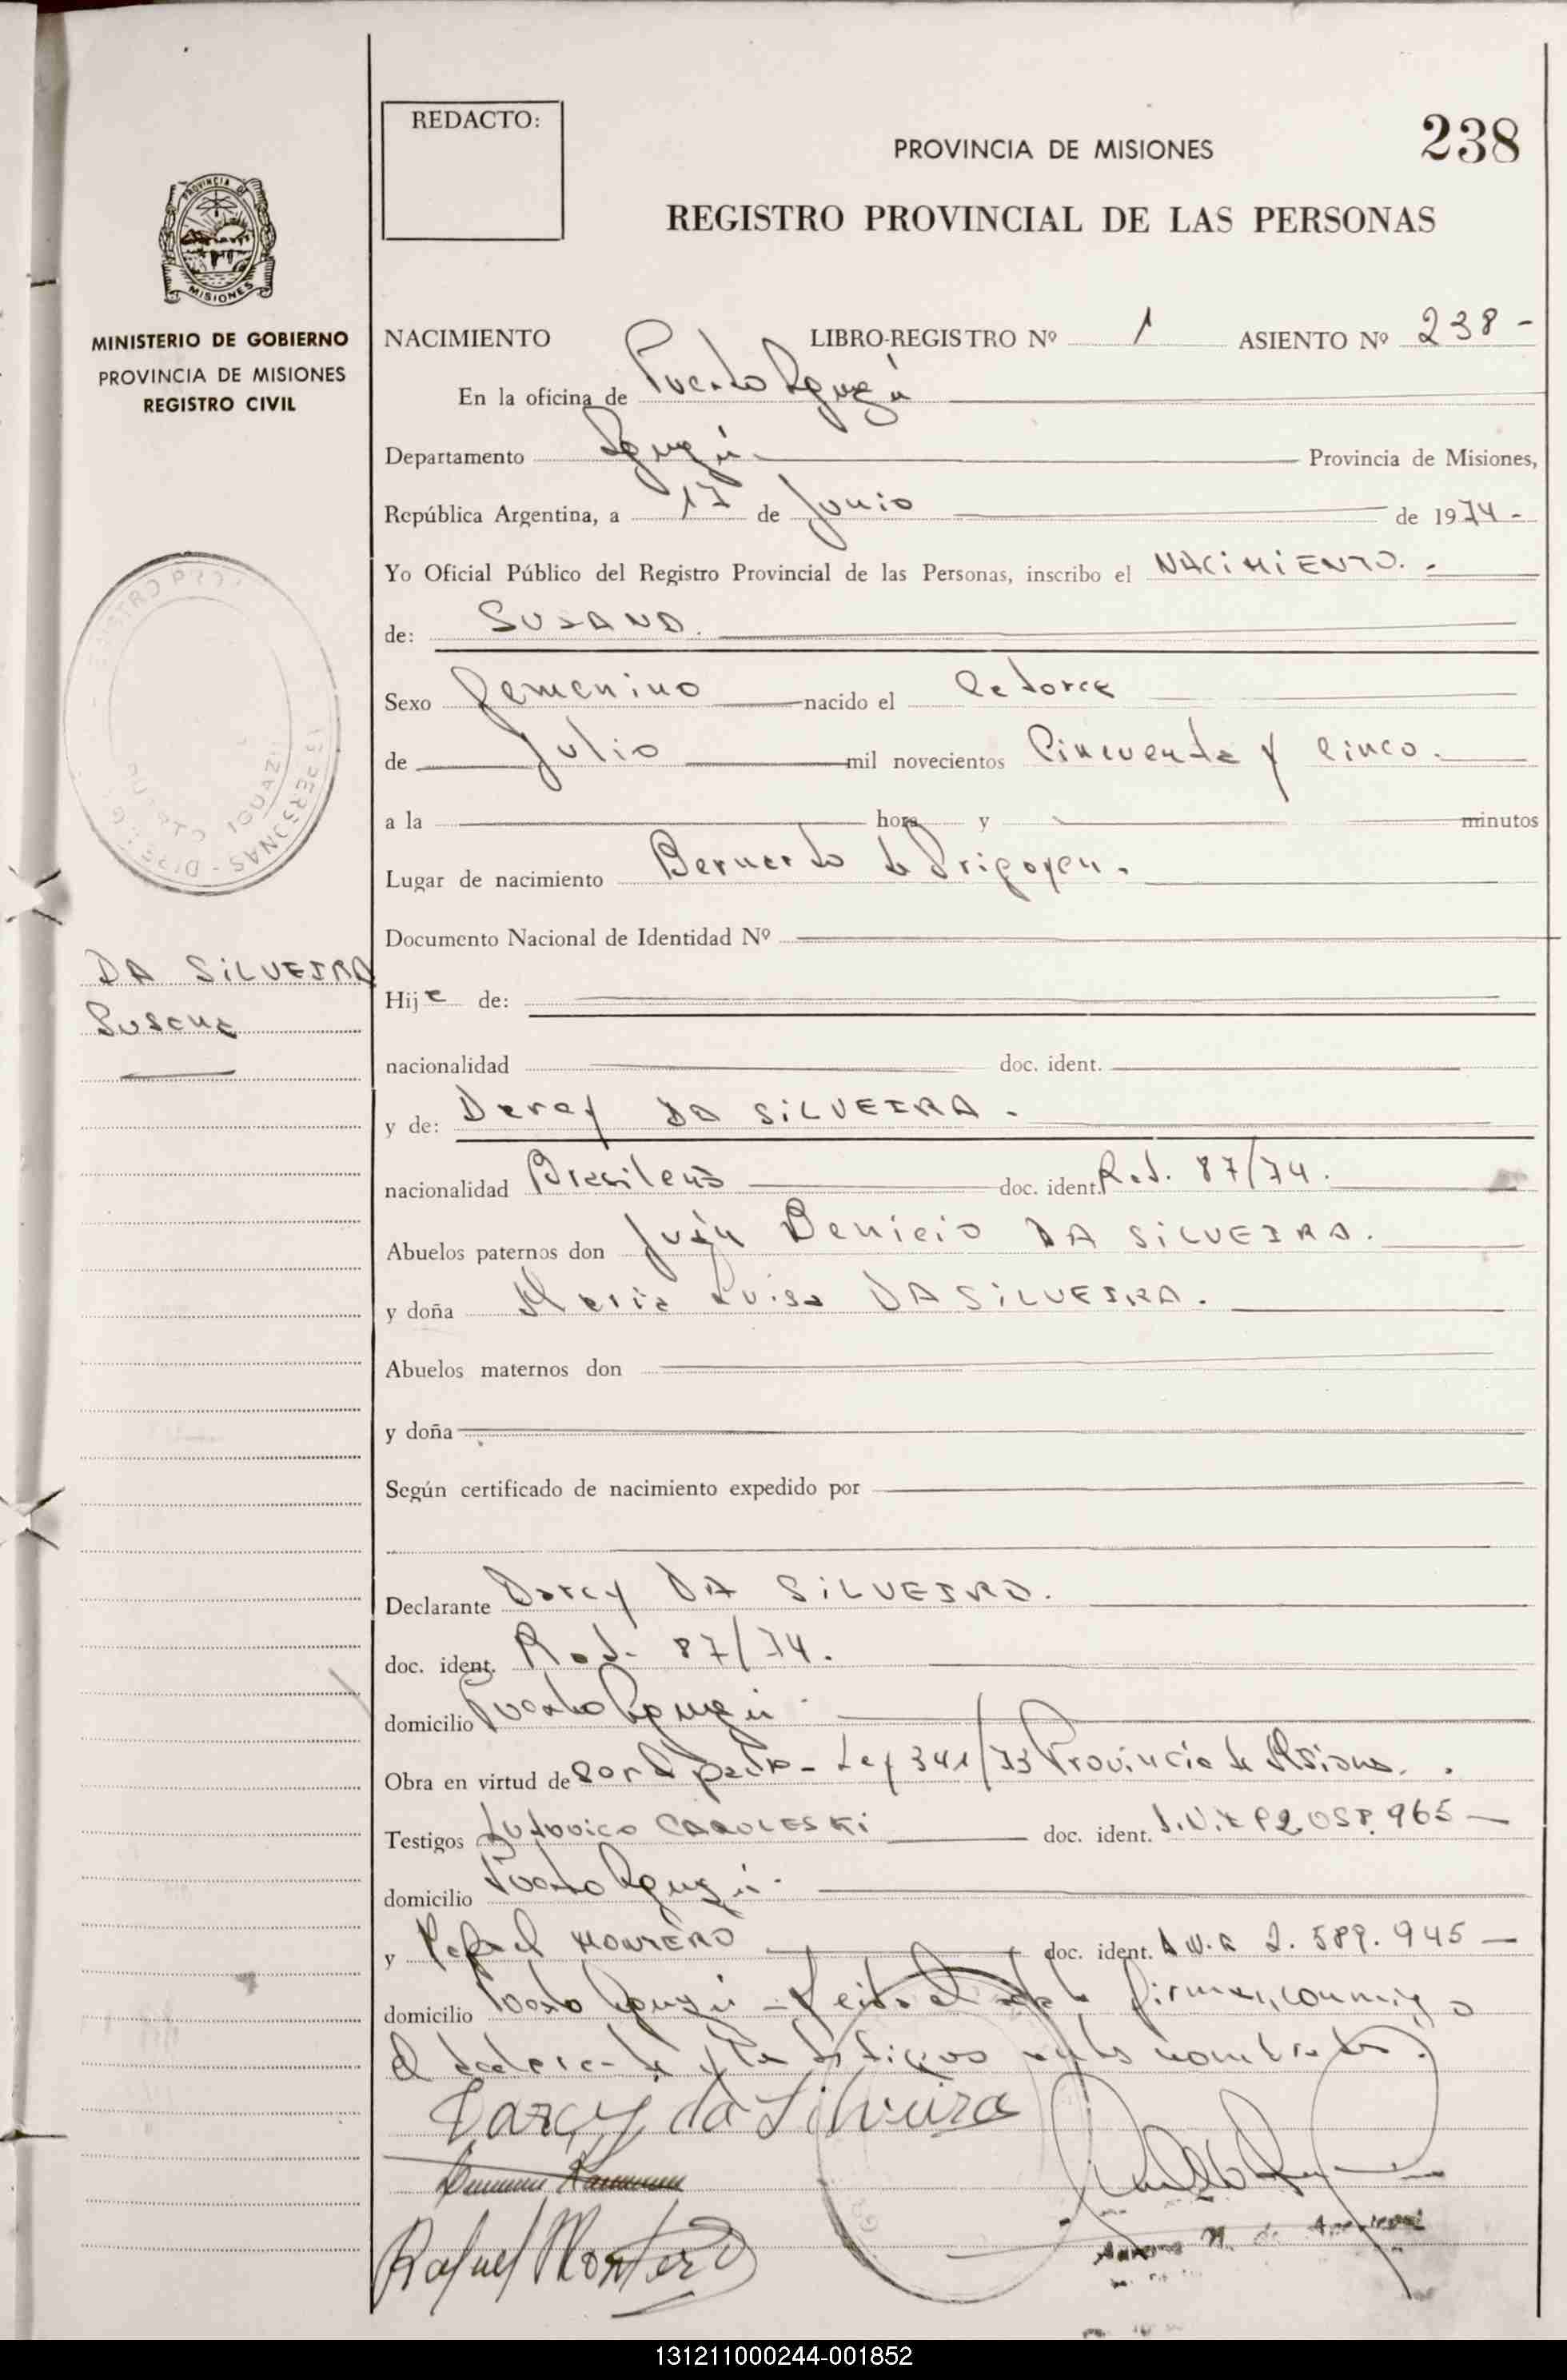 REDACTO:
PROVINCIA DE MISIONES
238
REGISTRO PROVINCIAL DE LAS PERSONAS
PROVINCIA DE
MISIONES
MINISTERIO DE GOBIERNO
PROVINCIA DE MISIONES
REGISTRO CIVIL
NACIMIENTO LIBRO-REGISTRO Nº 1 ASIENTO Nº 238-
En la oficina de Puerto Iguazú
Departamento Iguazú Provincia de Misiones,
República Argentina, a 17 de Junio de 1974-
Yo Oficial Público del Registro Provincial de las Personas, inscribo el NACIMIENTO.-
de: SUSANA.
Sexo Femenino nacido el Catorce
de Julio mil novecientos Cincuenta y Cinco.
a la hora y minutos
Lugar de nacimiento Bernardo de Irigoyen.
Documento Nacional de Identidad Nº
DA SILVEIRA
Susana
Hija de:
nacionalidad doc. ident.
y de: Darcy DA SILVEIRA.
nacionalidad Brasileña doc. ident. 87/74.
Abuelos paternos don Juan Benicio DA SILVEIRA.
y doña Maria Luisa DA SILVEIRA.
Abuelos maternos don
y doña
Según certificado de nacimiento expedido por
Declarante Darcy DA SILVEIRA.
doc. ident. 87/74.
domicilio Puerto Iguazú.
Obra en virtud de Ley 341/73 Provincia de Misiones.
Testigos Ludovico CAROLESKI doc. ident. 965-
domicilio Puerto Iguazú.
y Rafael MONTERO doc. ident. 2.589.945-
domicilio Puerto Iguazú - Leida el acta firman conmigo
el declarante y los testigos nombrados.
Darcy da Silveira
Rafael Montero
131211000244-001852